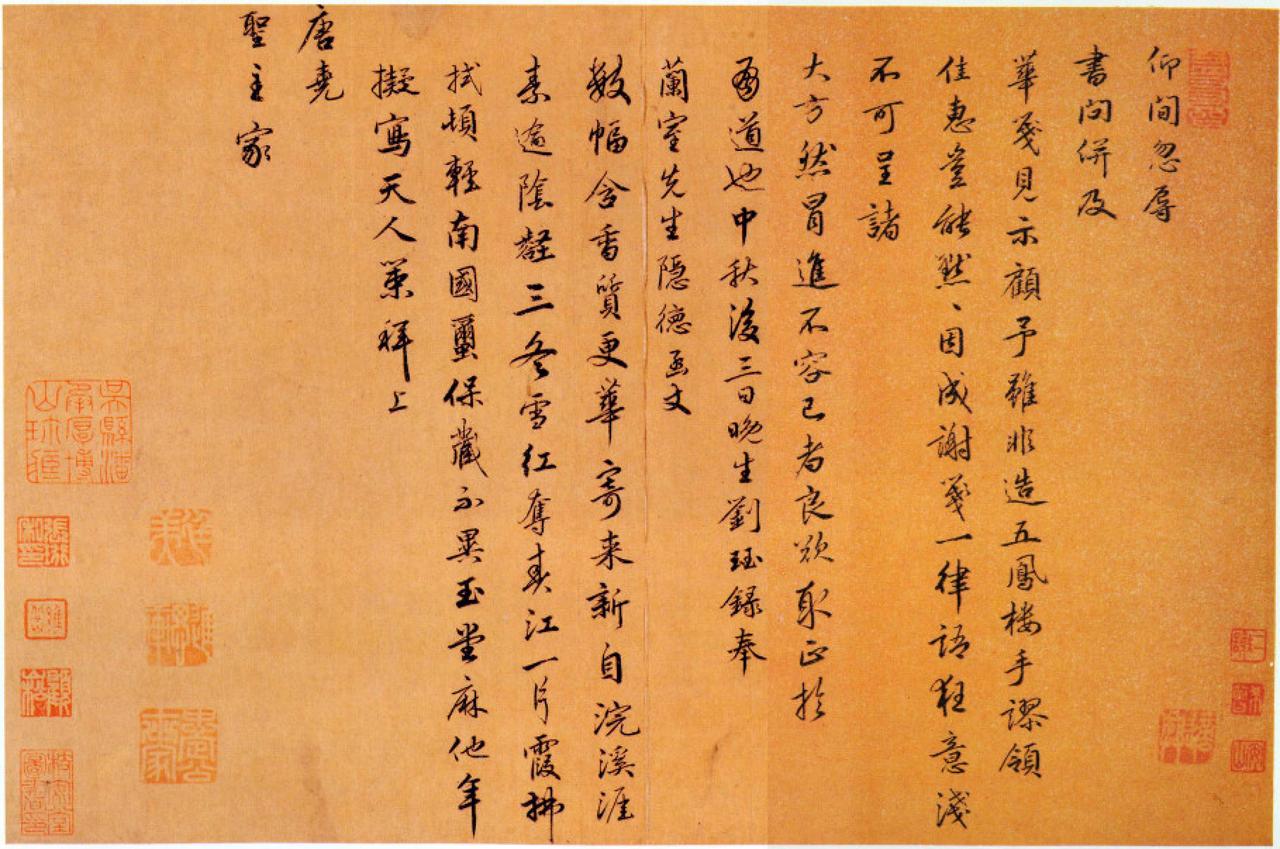 仰間忽辱
書問併及
華箋見示顧予雖非造五鳳樓手謬領
佳惠豈能默丶因成謝箋一律語狂意淺
不可呈諸
大方然冒進不容已者良欲取正於
有道也中秋後三日晚生劉珏錄奉
蘭室先生隱德函丈
數幅含香質更華寄来新自浣溪涯
素逾陰壑三冬雪紅奪春江一片霞拂
拭頓輕南國璽保藏不異玉堂麻他年
擬寫天人策拜上
唐堯
聖主家